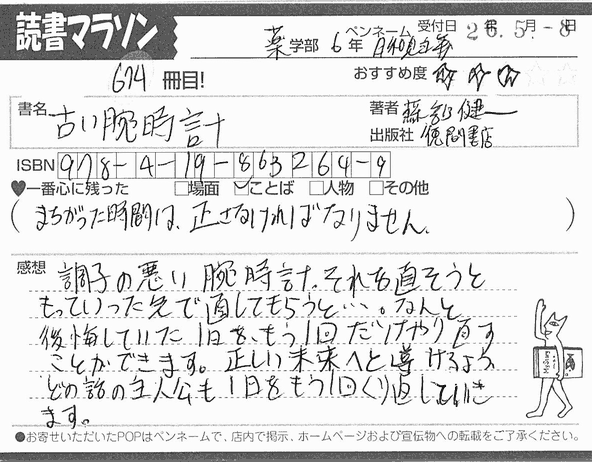 読書マラソン
薬学部 6年 ペンネーム 受付日 26.5月-8日
674冊目! おすすめ度 ☆ ☆ ☆
書名 古い腕時計
著者 蘇部健一
出版社 徳間書店
ISBN 978-4-19-863264-9
♥一番心に残った □場面 ☑ことば □人物 □その他
(まちがった時間は、正さなければなりません。)
感想 調子の悪い腕時計。それを直そうと
もっていった先で直してもらうと…。なんと
後悔していた1日を、もう1回だけやり直す
ことができます。正しい未来へと導けるよう、
どの話の主人公も1日をもう1回くり返していき
ます。
●お寄せいただいたPOPはペンネームで、店内で掲示、ホームページおよび宣伝物への転載をご了承ください。